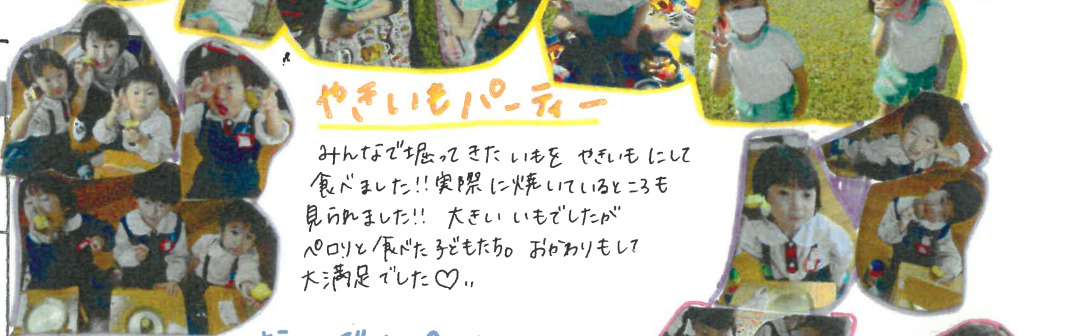 やきいもパーティー
みんなで堀ってきたいもを やきいもにして
食べました!!実際に焼いているところも
見られました!! 大きい いもでしたが
ペロリと食べた子どもたち。おかわりもして
大満足でした♡..